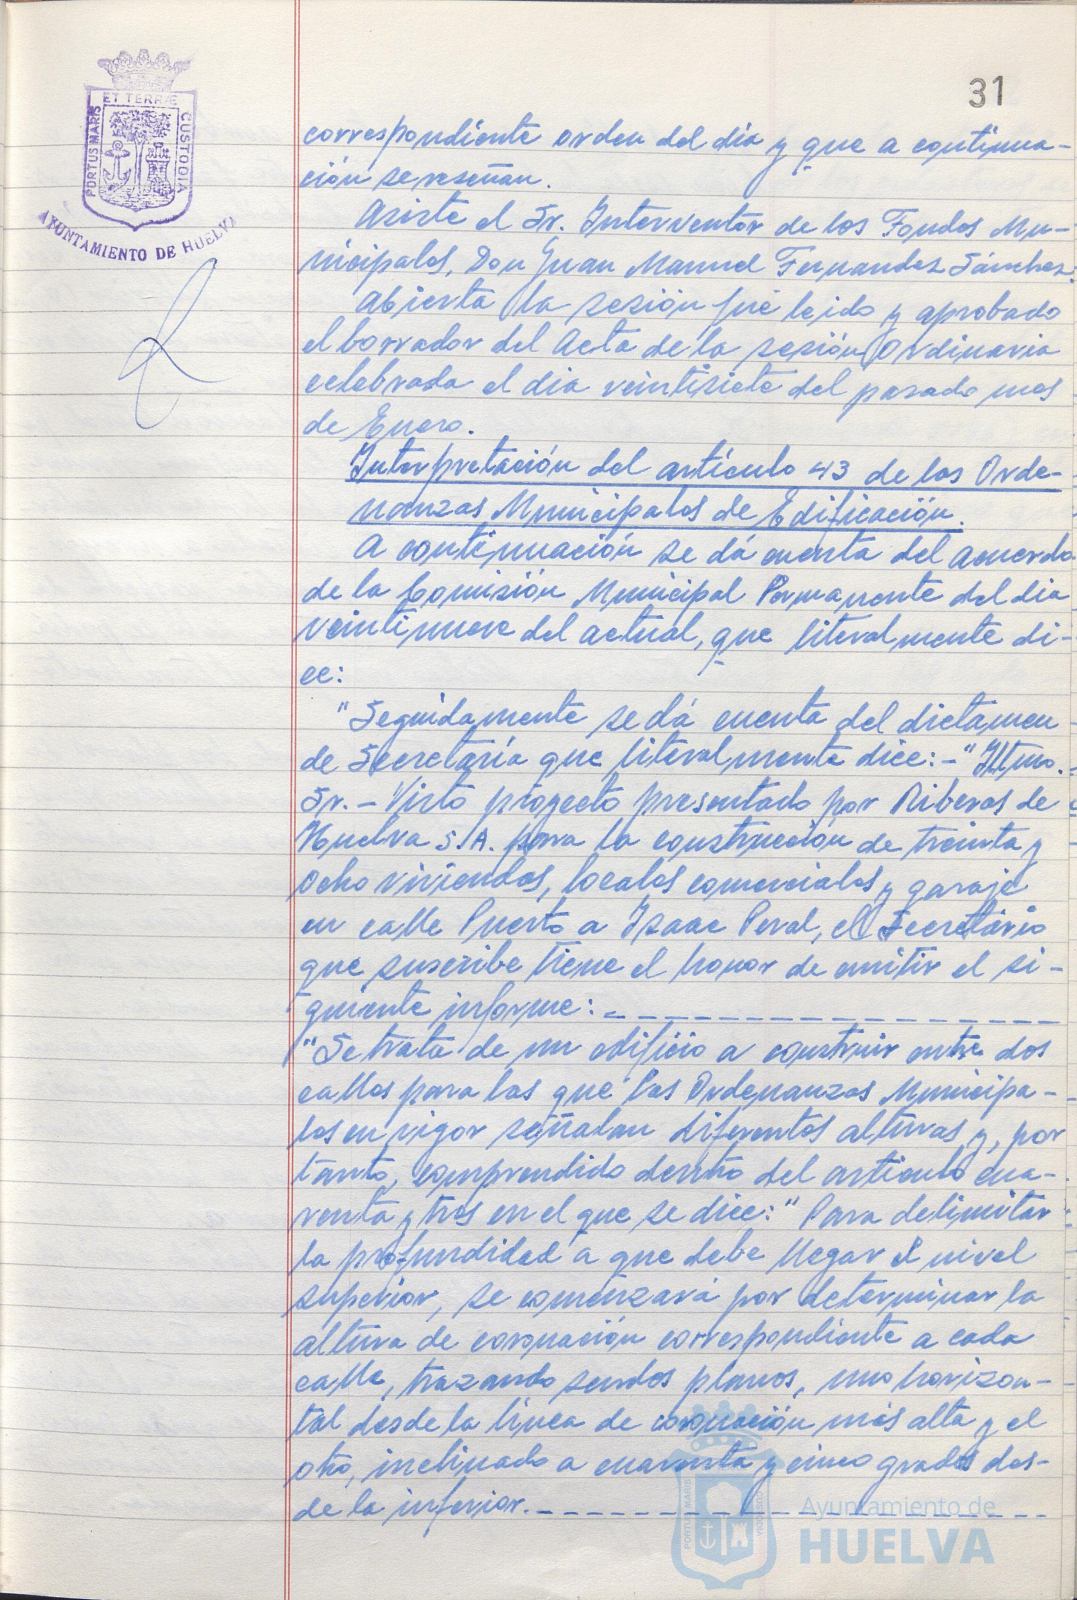 31
ET TERRÆ
PORTUS MARIS
CUSTODIA
AYUNTAMIENTO DE HUELVA
correspondiente orden del dia y que a continua-
ción se reseñan.
Asiste el Sr. Interventor de los Fondos Mu-
nicipales, Don Juan Manuel Fernandez Sánchez.
Abierta la sesión fué leido y aprobado
el borrador del Acta de la sesión Ordinaria
celebrada el dia veintisiete del pasado mes
de Enero.
Interpretación del artículo 43 de las Orde-
nanzas Municipales de Edificación.
A continuación se dá cuenta del acuerdo
de la Comisión Municipal Permanente del dia
veintinueve del actual, que literalmente di-
ce:
"Seguidamente se dá cuenta del dictamen
de Secretaría que literalmente dice:- "Iltmo.
Sr. - Visto proyecto presentado por Riberas de
Huelva S.A. para la construcción de treinta y
ocho viviendas, locales comerciales y garaje
en calle Puerto a Isaac Peral, el Secretario
que suscribe tiene el honor de emitir el si-
guiente informe:
"Se trata de un edificio a construir entre dos
calles para las que las Ordenanzas Municipa-
les en vigor señalan diferentes alturas y, por
tanto, comprendido dentro del artículo cua-
renta y tres en el que se dice: "Para delimitar
la profundidad a que debe llegar el nivel
superior, se comenzará por determinar la
altura de coronación correspondiente a cada
calle, trazando sendos planos, uno horizon-
tal desde la línea de coronación más alta y el
otro, inclinado a cuarenta y cinco grados des-
de la inferior.
PORTUS MARIS
CUSTODIA
Ayuntamiento de
HUELVA